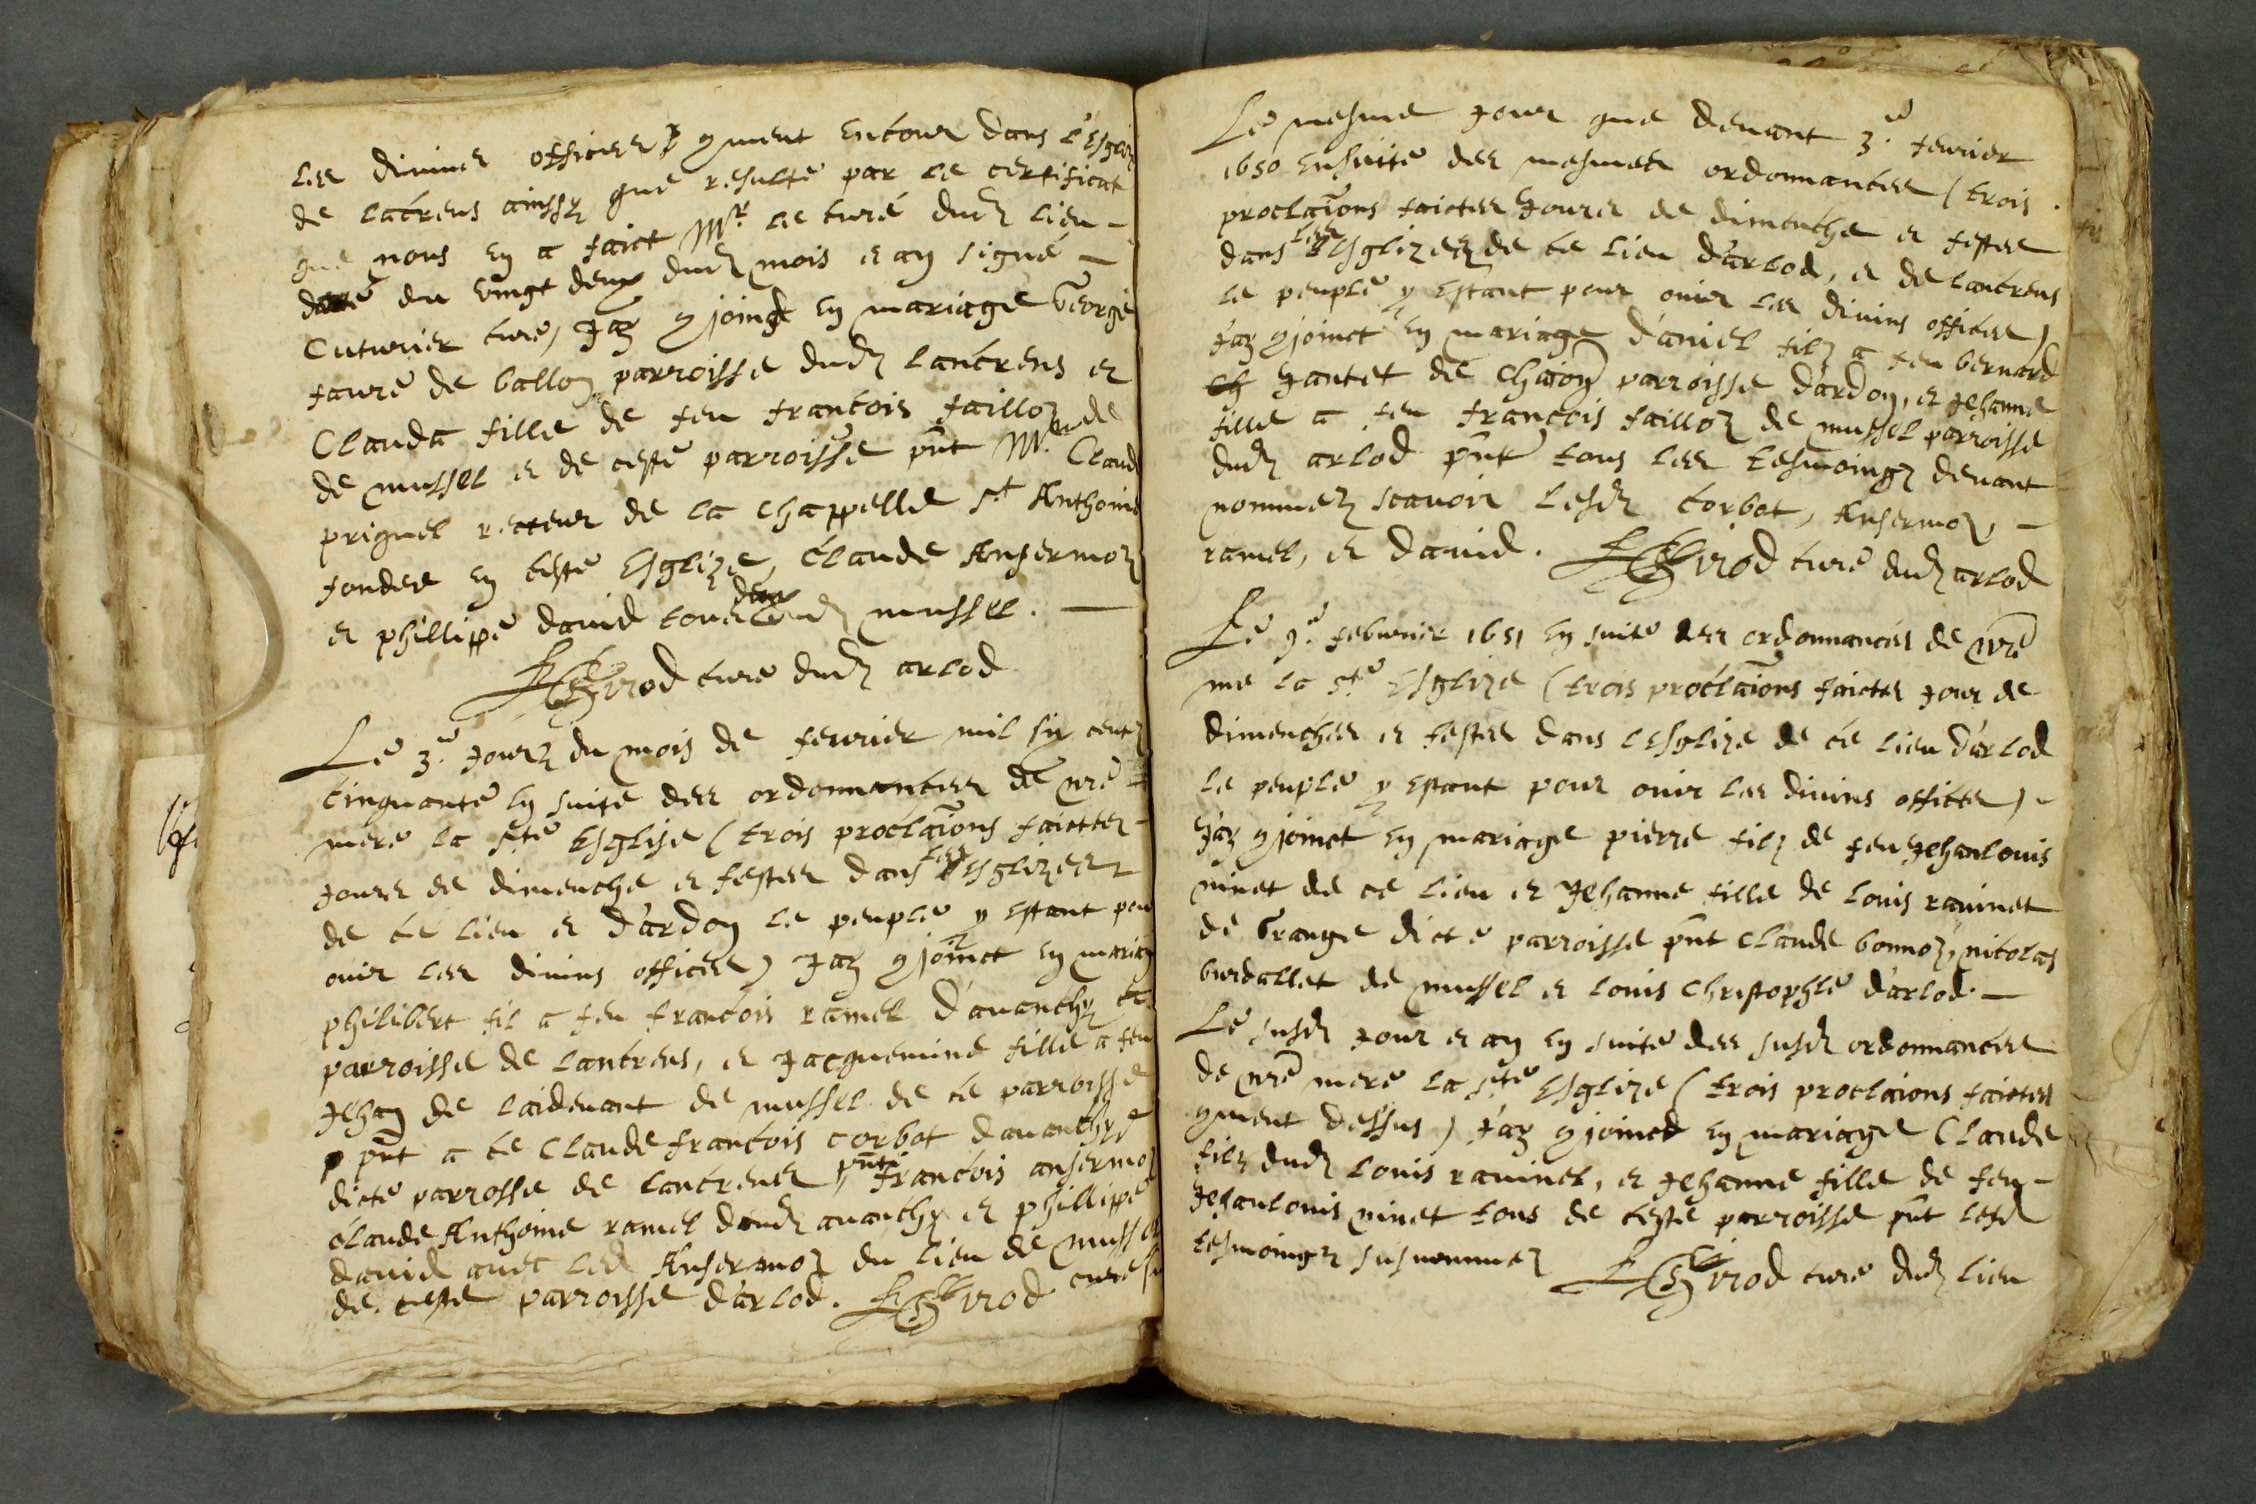 les divines offices, 9ment encour dans l'Esglise
de lacrens ainssy que resulte par le certificat
que nous en a faict Mr. le curé dud lieu -
daté du vingt deux dud mois et an signé -
Cuturier curé, J'ay 9joingt en mariage George
favre de ballon parroisse dud lancrens et
Clauda fille de feu francois faillod
de mussel et de ceste parroisse pnt Mre Claude
priguel recteur de la chappelle St Anthoine
fondee en ceste Esglize, Claude Ansermoz
et phillippe david tous deux dud mussel. -
curé dud arlod
Le 3e. Jour du mois de fevrier mil six centz
cinquante en suite des ordonnances de nre
mere la ste Esglise (trois proclaions faictes -
jours de dimenche et festes dans les Esglizes
de ce lieu et d'ardon le peuple y estant pour
ouir les divins offices) J'ay 9joinct en mariage
philibert fil a feu francois ramel d'avanchy
parroisse de lancrens, et Jacquemine fille a feu
Jehan de laidevant de mussel de ce parroisse
pnt a ce Claude francois corbot davanchy
dicte parrosse de lancrens, pnt francois ansermoz
claude Anthoine ramel dud avanchy et phillippe
david avec led Ansermoz du lieu de mussel
de ceste parroisse d'arlod. curé
Le mesme jour que devant 3e. fevrier
1650 Ensuite des mesmes ordonnances (trois
proclaions faictes jours de dimenche et festes
dans les Esglizes de ce lieu d'arlod, et de lancrens
le peuple y estant pour ouir les divins offices)
J'ay 9joinct en mariage daniel filz a feu bernard
Jantet de chaon parroisse d'ardon, et Jehanne
fille a feu francois failloz de mussel parroisse
dud arlod pnt tous les tesmoingz devant
nommez scavoir lesd corbot, Ansermoz, -
ramel, et david. curé dud arlod
Le 9e. febvrier 1651 en suite des ordonnances de nre
me la ste Esglize (trois proclaions faictes jour de
dimenches et festes dans l'Esglize de ce lieu d'arlod
le peuple y estant pour ouir les divins offices) -
J'ay 9joinct en mariage pierre filz de feu Jehanlouis
ninet de ce lieu et Jehanne fille de louis ravinet
de Grange dicte parroisse pnt claude bonnoz, nicolas
burdallet de mussel et louis Christophle d'arlod. -
Le susd jour et an en suite des susd ordonnances
de nre mere la ste Esglize (trois proclaions faictes
9ment dessus) J'ay 9joinct en mariage Claude
filz dud louis ravinet, et Jehanne fille de feu -
Jehanlouis ninet tous de ceste parroisse pnt lesd
tesmoingz susnommez curé dud lieu